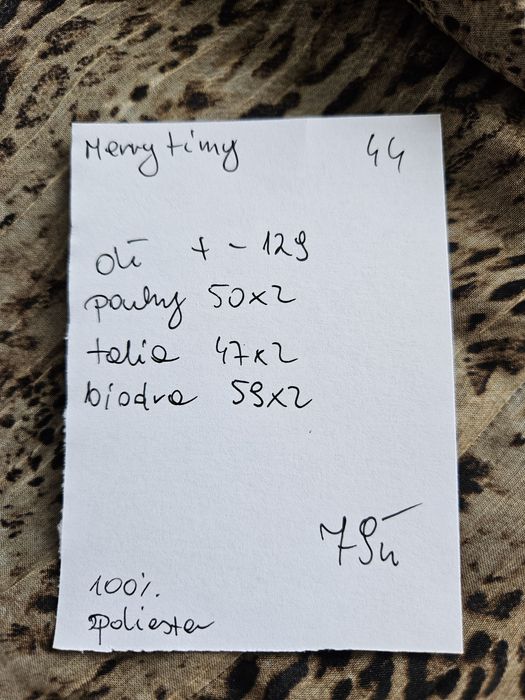 Merrytimy 44
dł + - 129
pachy 50x2
talia 47x2
biodra 59x2
79zł
100%.
poliester